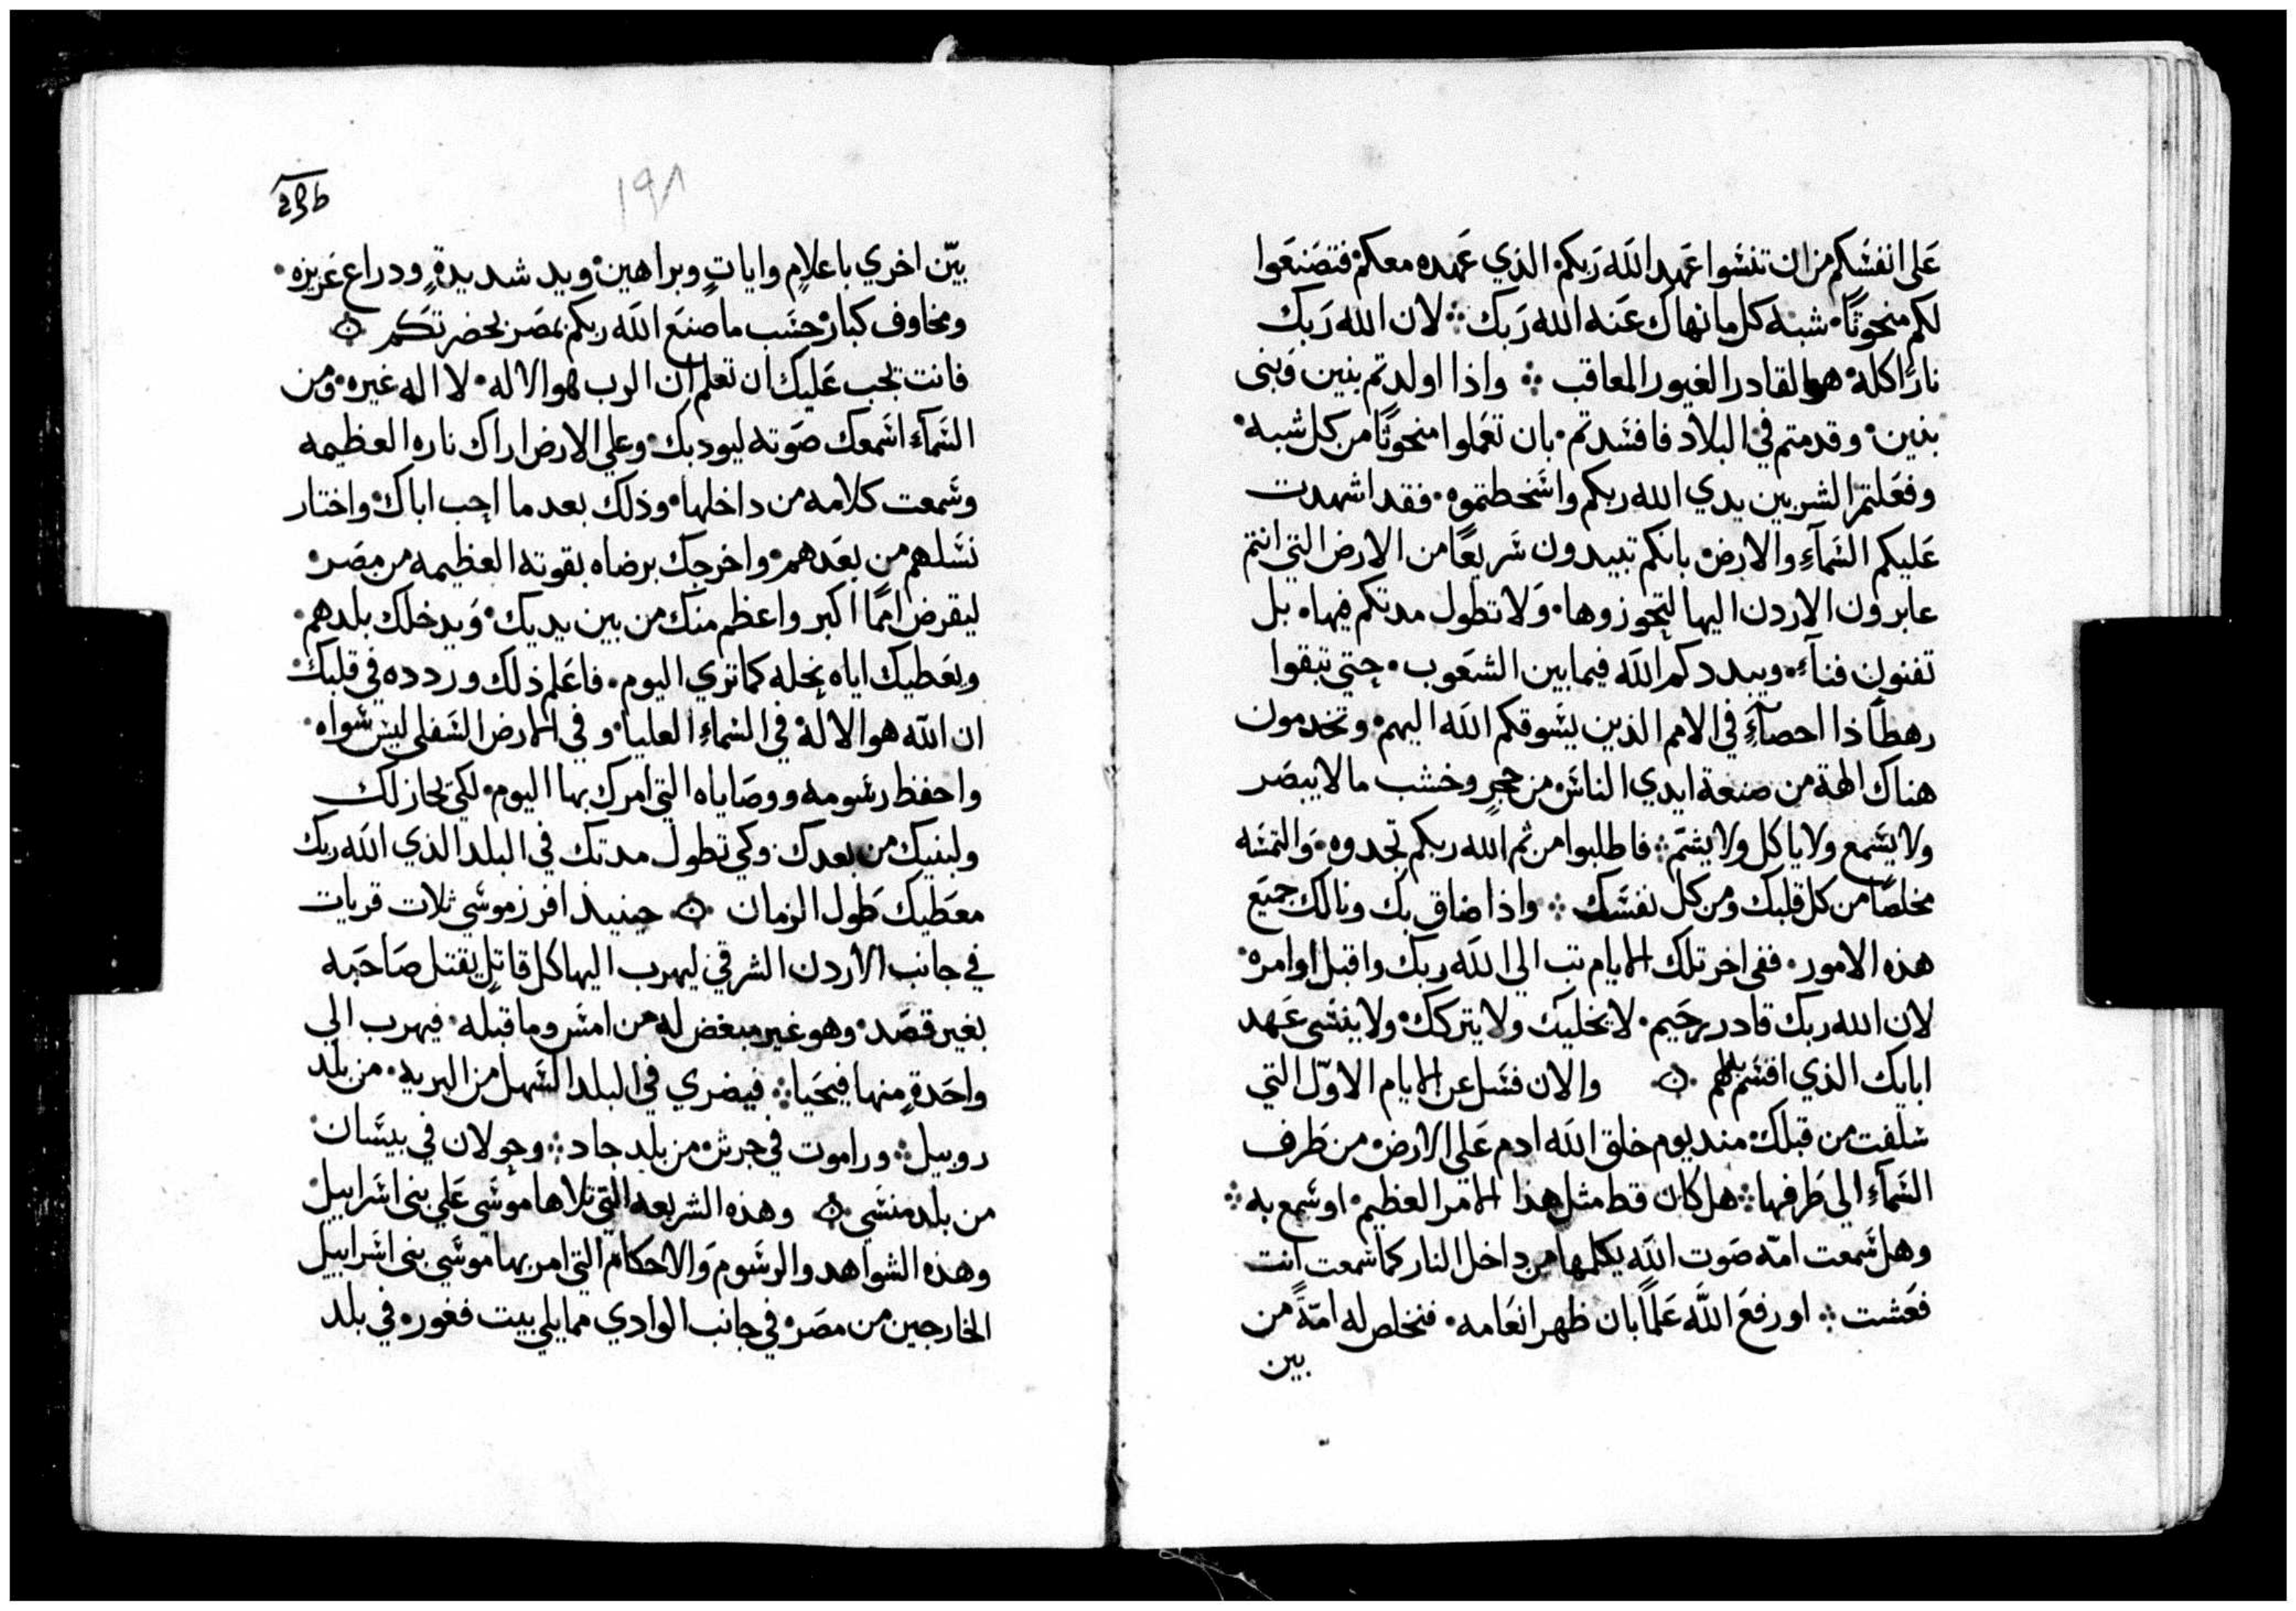 عَلى انفسَكم من ان تنسَوا عَهد اللَه رَبكم الذي عَهده معكم فتصَنعَوا
لكم منحوتًا شبه كل ما نهاك عَنه الله رَبك لان الله رَبك
نارًا اكلة هو القادر الغيور المعاقب واذا اولدتم بنين وَبنى
بنين وقدمتم في البلاد فافسَدتم بان تعَملوا منحوتًا من كل شبه
وفعَلتم الشر بين يدي الله ربكم واسَخطتموه فقد اشهدت
عَليكم السَمآءِ والارض بانكم تبيدون سَريعًا من الارض التي انتم
عابرون الاردن اليها لتجوزوها وَلا تطول مدتكم فيها بل
تفنون فنآءً ويبددكم اللَه فيما بين الشعَوب حتي تبقوا
رهطًا ذا احصآءً في الامم الذين يسَوقكم اللَه اليهم وتخدمون
هناك الهة من صنعة ايدي الناسَ من حجرٍ وخشب ما لا يبصَر
ولا يسَمع ولا ياكل ولا يشتمّ فاطلبوا من ثم الله ربكم تجدوه وَالتمسَه
مخلصًا من كل قلبك ومن كل نفسَك واذا ضاق بك ونالك جميَع
هذه الامور ففى اخر تلك الايام تب الي اللَه ربك واقبل اوامره
لان الله ربك قادر رحَيم لا يخليك ولا يتركك ولا ينسَى عَهد
ابايك الذي اقسَم لهم والان فسَل عن الايام الاوّل التي
سَلفت من قبلك مند يوم خلق اللَه ادم عَلى الارض من طَرف
السَمآءِ الي طَرفها هل كان قط مثل هذا الامر العظيم او سَمع به
وهل سَمعت امّه صَوت اللَه يكلمها من داخل النار كما سَمعت انت
فعَشت او رفعَ اللَّه عَلمًا بان ظهر انعَامه فتخلص له امّةً من
بين
236
١٩٨
بيّن اخري باعلامٍ واياتٍ وبراهين وبيد شديدةٍ ودراع عَزيزه
ومخاوف كبار حسَب ما صنعَ اللَه ربكم بمصَر بحضرتكَم
فانت تجب عَليك ان تعلم ان الرب هو الاله لا اله غيره وَمن
السَمآءِ اسَمعك صَوته ليودبك وعلي الارض اراك ناره العظيمه
وسَمعت كلامه من داخلها وذلك بعد ما احب اباك واختار
نسَلهم من بعَدهم واخرجك برضاه بقوته العظيمه من مصَر
ليقرض اممًا اكبر واعظم منك من بين يديك وَيدخلك بلدهم
ويعَطيك اياه نحله كما تري اليوم فاعَلم ذلك وردده في قلبك
ان اللَه هو الالة في السَماءِ العليا وفي الارض السَفلي ليسَ سَواه
واحفظ رسَومه ووصَاياه التي امرك بها اليوم لكي يحاز لك
ولبنيك من بعدك وكي تطول مدتك في البلد الذي اللَه ربك
معَطيك طَول الزمان حينيذ افرز موسَي ثلاث قريات
في جانب الاردن الشرقي ليهرب اليها كل قاتلٍ يقتل صَاحَبه
بغير قصَد وهو غير مبغض له من امسَ وما قبله فيهرب الي
واحَدةٍ منها فيحَيا فيضري في البلد السَهل من البريه من بلد
روبيل وراموت في جرش من بلد جاد وجولان في بيسَان
من بلد منسَي وهذه الشريعه التي تلاها موسَي عَلي بني اسَراييل
وهذه الشواهد والرسَوم وَالاحكام التي امر بها موسَي بني اسَراييل
الخارجين من مصَر في جانب الوادي مما يلي بيت فغور في بلد